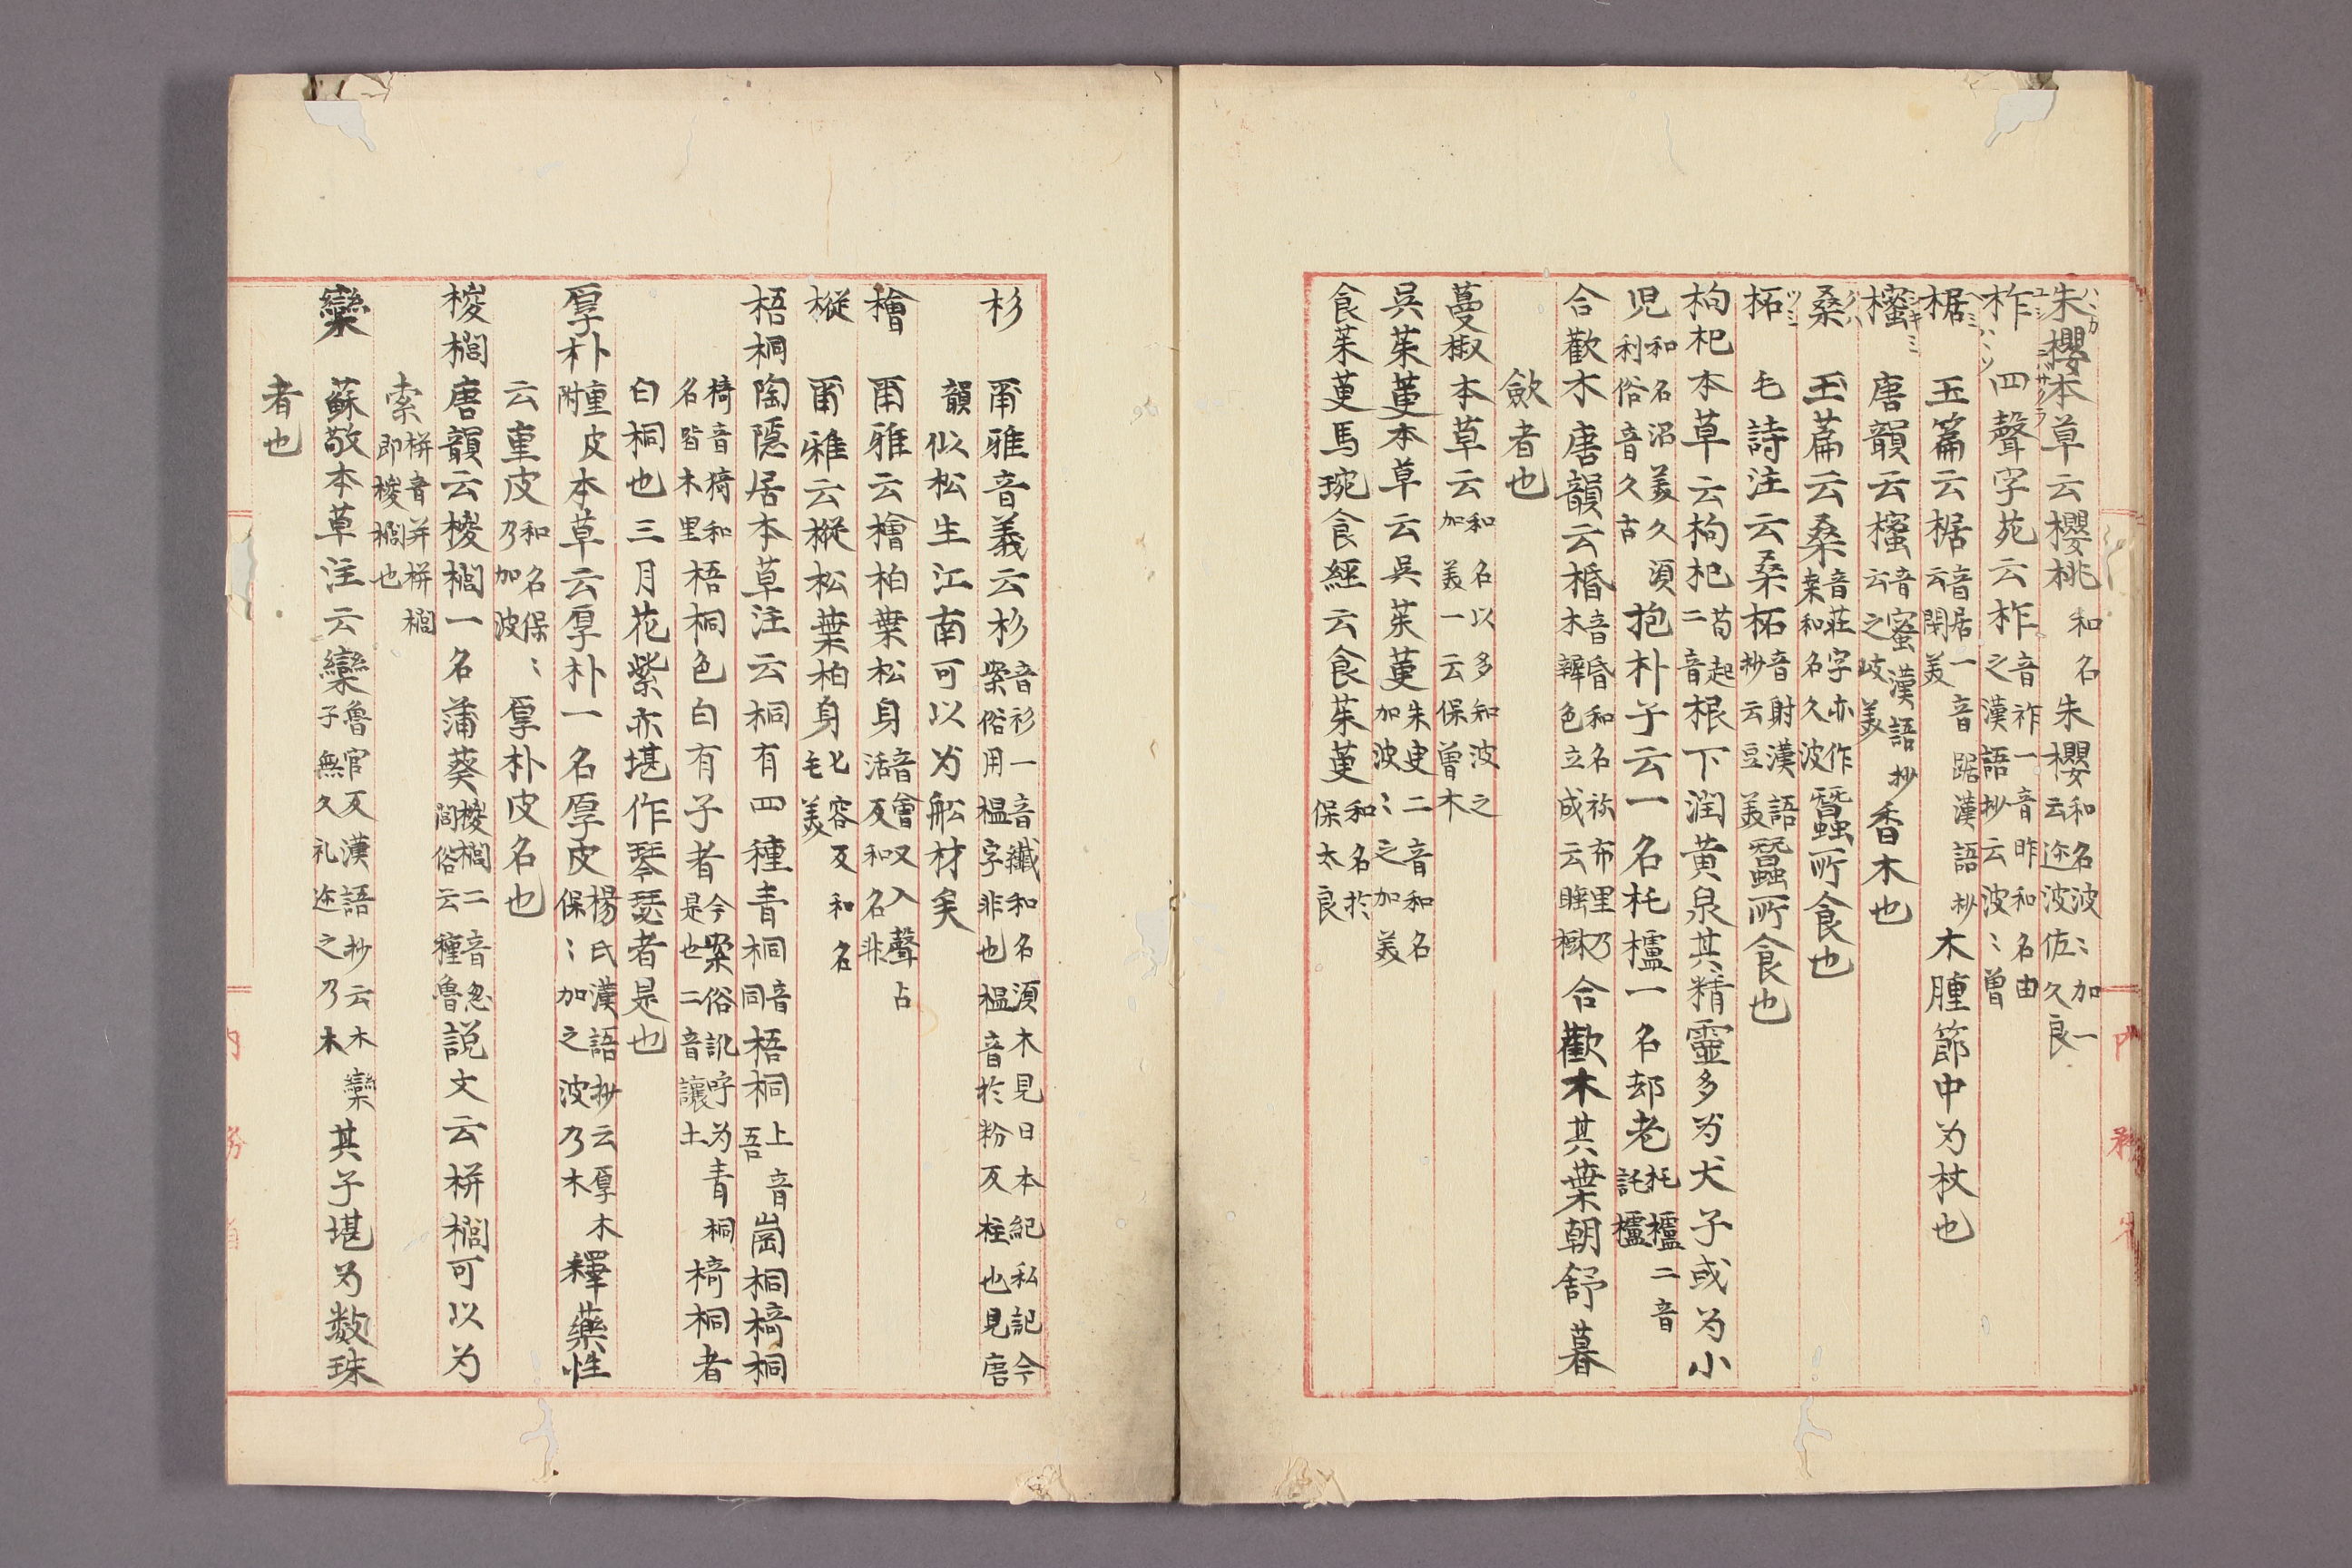 朱櫻本草云櫻桃和名朱櫻和名波〻加一云迩波佐久良
柞四聲字苑云柞音祚一音昨和名由之漢語抄云波〻曽
椐玉篇云椐音居一音踞漢語抄云閇美木腫節中为杖也
櫁唐韻云櫁音蜜漢語抄云之岐美香木也
桑玉篇云桑音荘字亦作桒和名久波蠶所食也
柘毛詩注云桑柘音射漢語抄云豆美蠶所食也
枸杞本草云枸杞苟起二音根下潤黄泉其精靈多为犬子或为小
児和名沼美久湏利俗音久古抱朴子云一名杔櫨一名却老杔櫨二音託櫨
合歡木唐韻云棔音昏和名祢布里乃木辨色立成云睡樹合歡木其葉朝舒暮
斂者也
蔓椒本草云和名以多知波之加美一云保曽木
呉茱萸本草云呉茱萸朱臾二音和名加波〻之加美
食茱萸馬琬食經云食茱萸和名於保太良
杉尓雅音義云杉音衫一音纖和名湏木見日本紀私記今案俗用榲字非也榲音於粉反柱也見唐韻
似松生江南可以为舩材矣
檜尓雅云檜柏葉松身音會又入聲古活反和名非
樅尓雅云樅松葉柏身七容反和名毛美
梧桐陶隠居本草注云桐有四種青桐音同梧桐上音吾崗桐椅桐
椅音猗和名皆木里梧桐色白有子者今案俗訛呼为青桐是也二音讓土椅桐者
白桐也三月花紫亦堪作琴瑟者是也
厚朴重皮附本草云厚朴一名厚皮楊氏漢語抄云厚木保〻加之波乃木釋藥性
云重皮和名保〻乃加波厚朴皮名也
椶櫚唐韻云椶櫚一名蒲葵椶櫚二音忩閭俗云種魯説文云栟櫚可以为
索栟音并栟櫚即椶櫚也
欒蘇敬本草注云欒魯官反漢語抄云木欒子無久礼迩之乃木其子堪为数珠
者也